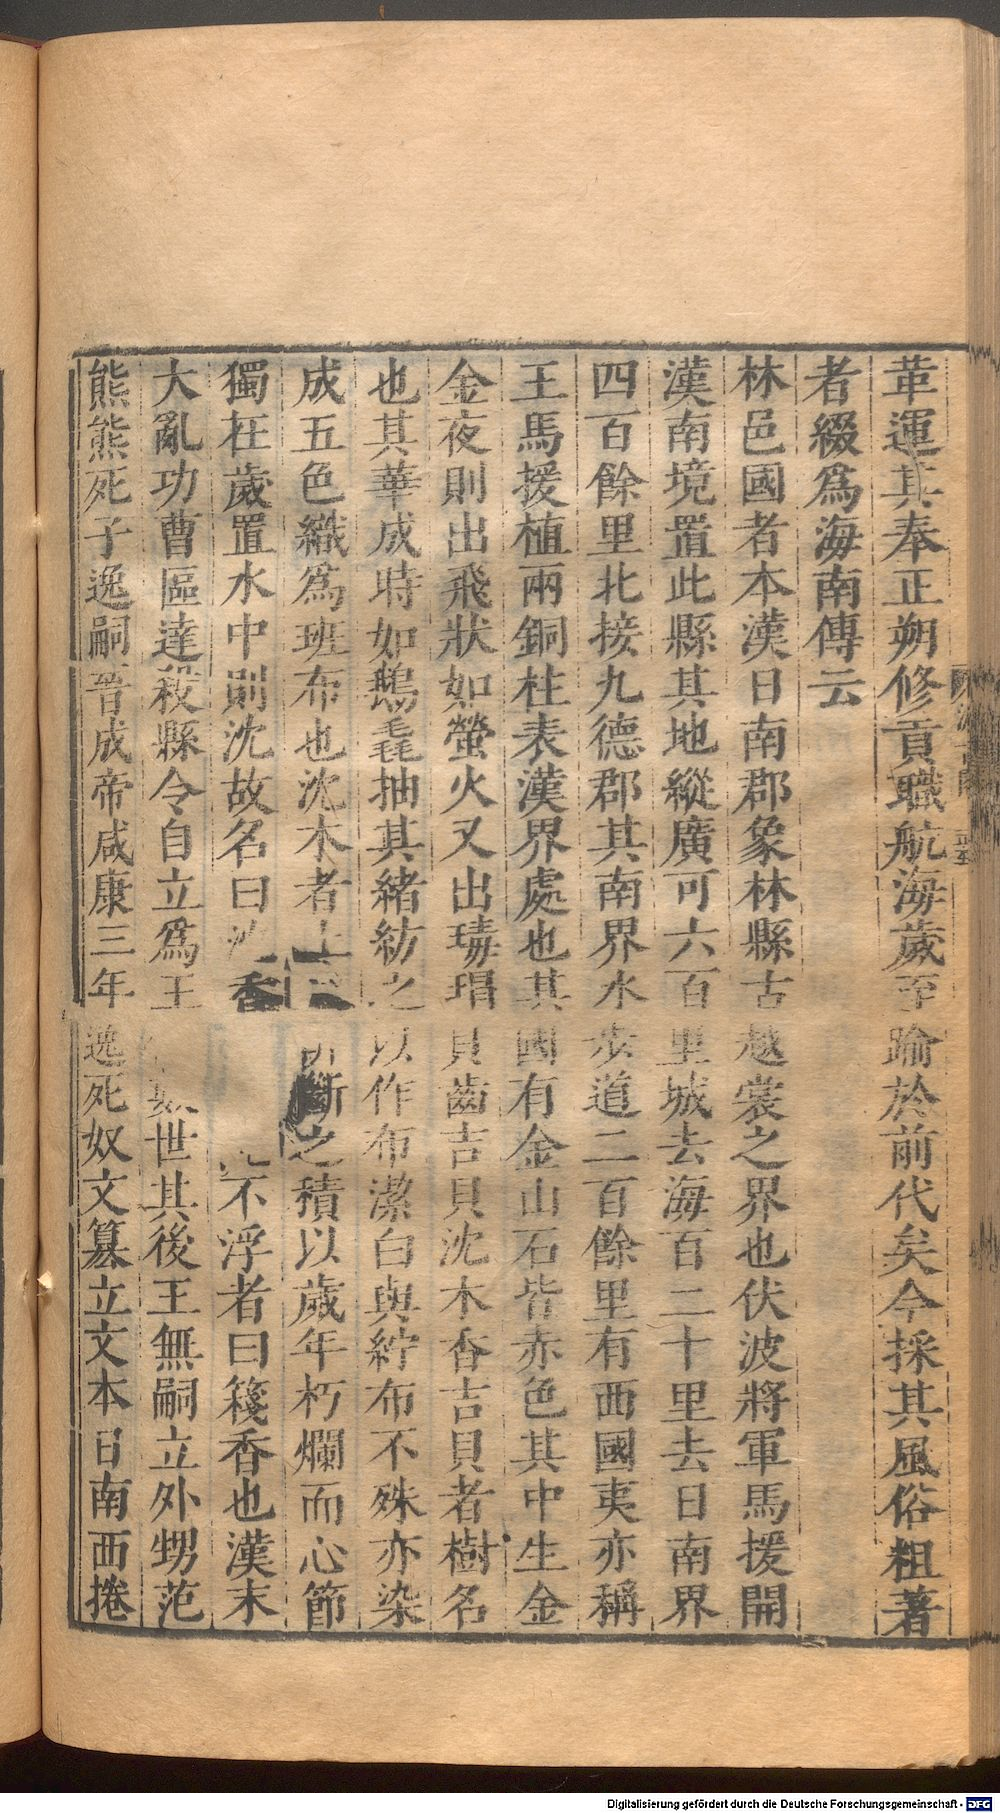 革運其奉正朔修貢職航海歲至踰於前代矣今採其風俗粗著
者綴爲海南傳云
林邑國者本漢日南郡象林縣古越裳之界也伏波將軍馬援開
漢南境置此縣其地縱廣可六百里城去海百二十里去日南界
四百餘里北接九德郡其南界水步道二百餘里有西國夷亦稱
王馬援植兩銅柱表漢界處也其國有金山石皆赤色其中生金
金夜則出飛狀如螢火又出瑇瑁貝齒吉貝沈木香吉貝者樹名
也其華成時如鵝毳抽其緒紡之以作布潔白與紵布不殊亦染
成五色織爲班布也沈木者土斷之積以歲年朽爛而心節
獨在歲置水中則沈故名曰香不浮者曰篯香也漢末
大亂功曹區達殺縣令自立爲王數世其後王無嗣立外甥范
熊熊死子逸嗣晉成帝咸康三年逸死奴文簒立文本日南西捲
Digitalisierung gefördert durch die Deutsche Forschungsgemeinschaft - DFG